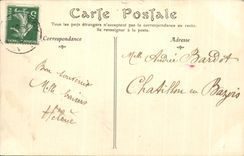 Carte Postale
Tous les pays étrangers n'acceptent pas la correspondance au recto.
Se renseigner à la poste.
Correspondance
Adresse
Melle Andrée Bardot
Chatillon en Bazois
Bon souvenir
Mille baisers
Hélène